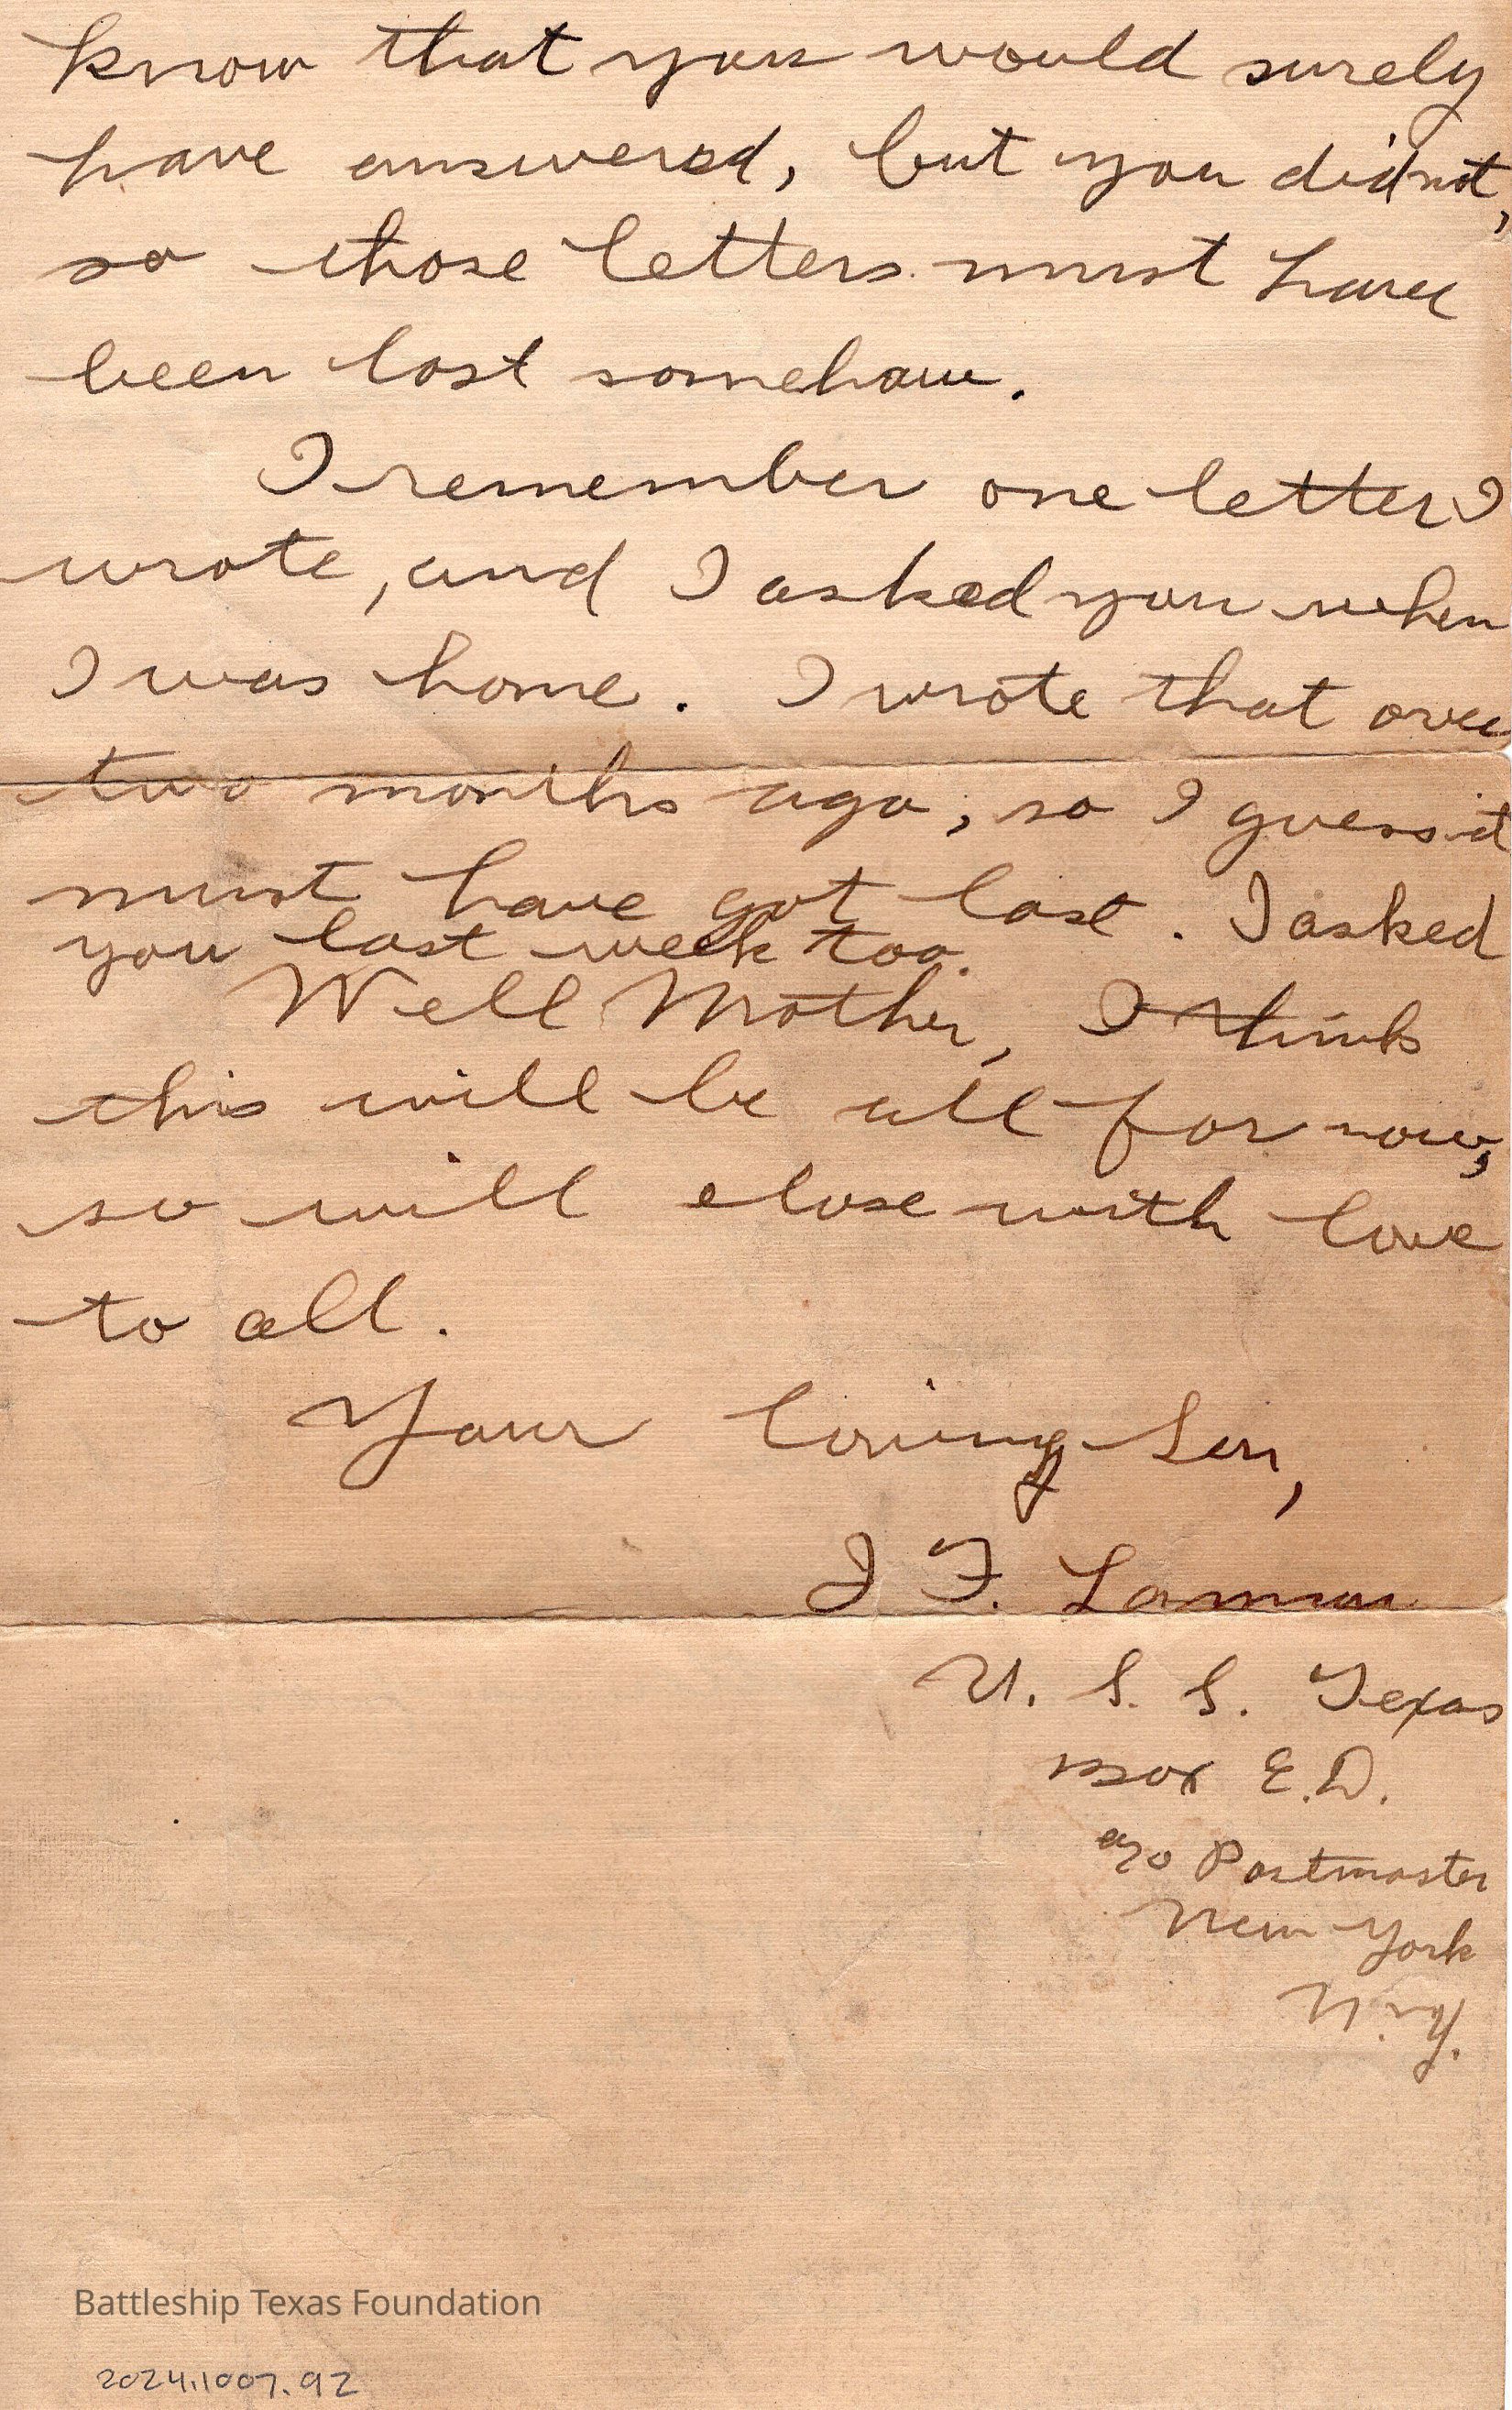 know that you would surely
have answered, but you didnot,
so those letters must have
been lost somehow.
I remember one letter I
wrote, and I asked you when
I was home. I wrote that over
two months ago, so I guess it
must have got lost. I asked
you last week too.
Well Mother, I think
this will be all for now,
so will close with love
to all.
Your loving Son,
J F.
U. S. S. Texas
E.D.
c/o Postmaster
New York
N.Y.
Battleship Texas Foundation
2024.1007.92